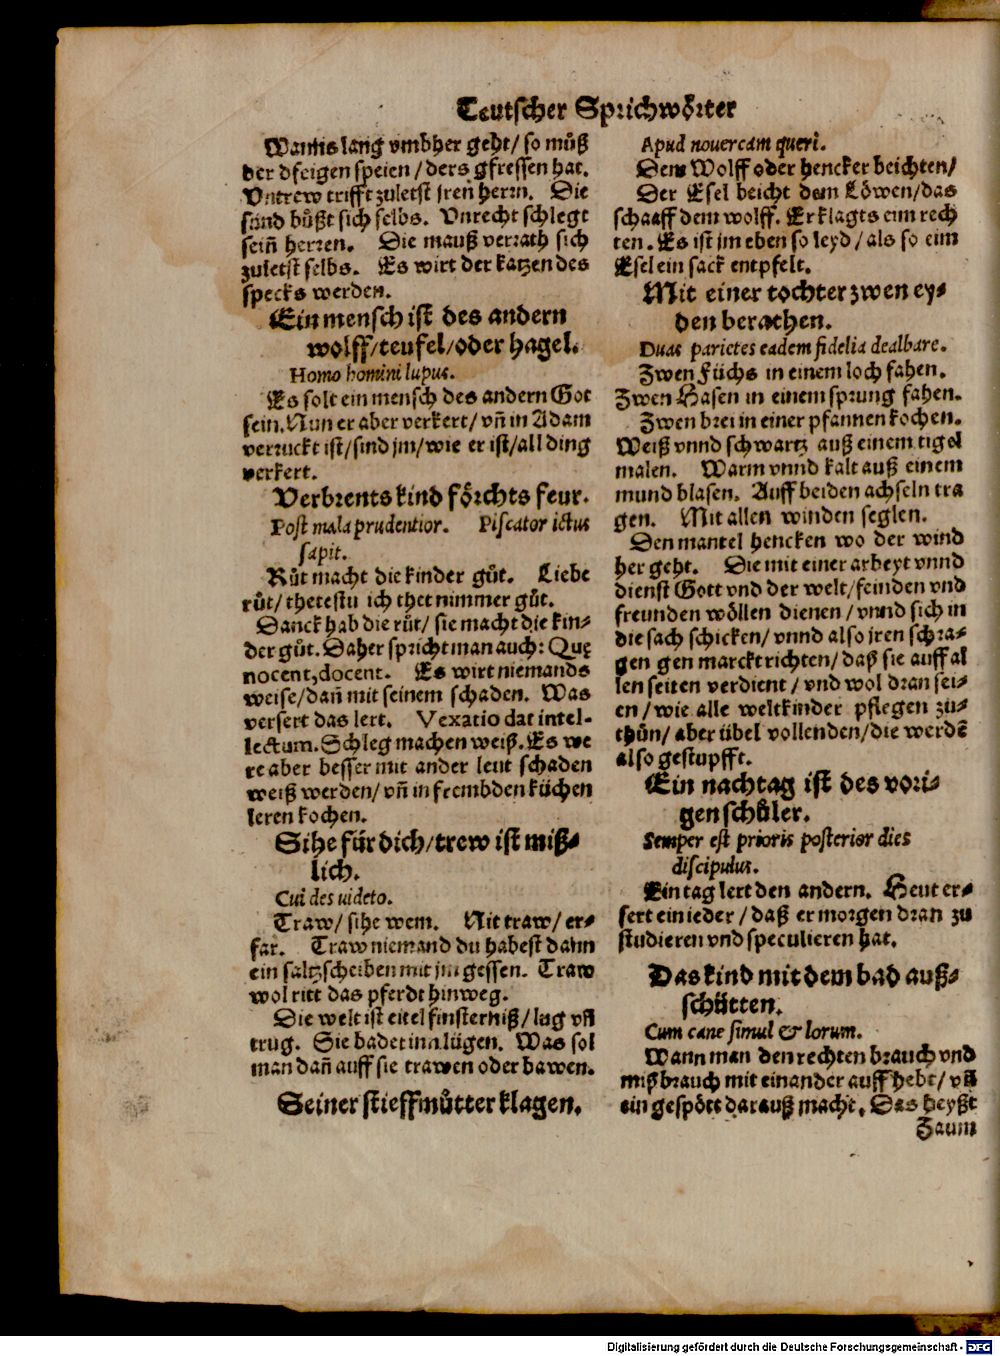 Teutscher Sprichwoͤrter
Wanns lang vmbher geht/ so muͦß
der dfeigen speien / ders gfressen hat.
Vntrew trifft zuletst jren herrn. Die
sünd buͤßt sich selbs. Vnrecht schlegt
sein̄ herren. Die mauß verrath sich
zuletst selbs. Es wirt der katzen des
specks werden.
Ein mensch ist des andern
wolff/teufel/oder hagel.
Homo homini lupus.
Es solt ein mensch des andern Got
sein. Nun er aber verkert/ vn̄ in Adam
verruckt ist/sind jm/wie er ist/all ding
verkert.
Verbrents kind foͤrchts feur.
Post mala prudentior. Piscator ictus
sapit.
Ruͦt macht die kinder guͦt. Liebe
ruͦt/ thetestu ich thet nimmer guͦt.
Danck hab die ruͦt/ sie macht die kin-
der guͦt. Daher spricht man auch: Quę
nocent, docent. Es wirt niemands
weise/dan̄ mit seinem schaden. Was
versert das lert. Vexatio dat intel-
lectum. Schleg machen weiß. Es we
re aber besser mit ander leut schaden
weiß werden/ vn̄ in frembden küchen
leren kochen.
Sihe für dich/trew ist miß-
lich.
Cui des uideto.
Traw/ sihe wem. Nit traw/ er-
far. Traw niemand du habest dann
ein saltzscheiben mit jm gessen. Traw
wol ritt das pferdt hinweg.
Die welt ist eitel finsterniß/ lug vn̄
trug. Sie badet inn lügen. Was sol
man dan̄ auff sie trawen oder bawen.
Seiner stieffmuͦtter klagen.
Apud nouercam queri.
Dem Wolff oder hencker beichten/
Der Esel beicht dem Loͤwen/das
schaaff dem wolff. Er klagts eim rech
ten. Es ist jm eben so leyd / als so eim
Esel ein sack entpfelt.
Mit einer tochter zwen ey-
den berathen.
Duas parietes eadem fidelia dealbare.
Zwen Füchs in einem loch fahen.
Zwen Hasen in einem sprung fahen.
Zwen brei in einer pfannen kochen.
Weiß vnnd schwartz auß einem tigel
malen. Warm vnnd kalt auß einem
mund blasen. Auff beiden achseln tra
gen. Mit allen winden seglen.
Den mantel hencken wo der wind
her geht. Die mit einer arbeyt vnnd
dienst Gott vnd der welt/feinden vnd
freunden woͤllen dienen / vnnd sich in
die sach schicken/ vnnd also jren schra-
gen gen marckt richten/ daß sie auff al
len seiten verdient / vnd wol dran sei-
en / wie alle weltkinder pflegen zu-
thuͦn/ aber übel vollenden/die werdē
also gestupfft.
Ein nachtag ist des vori-
gen schuͦler.
Semper est prioris posterior dies
discipulus.
Ein tag lert den andern. Heut er-
fert ein ieder / daß er morgen dran zu
studieren vnd speculieren hat.
Das kind mit dem bad auß-
schütten.
Cum cane simul & lorum.
Wann man den rechten brauch vnd
mißbrauch mit einander auff hebt/ vn̄
ein gespoͤtt darauß macht. Das heyßt
Zaum
Digitalisierung gefördert durch die Deutsche Forschungsgemeinschaft - DFG